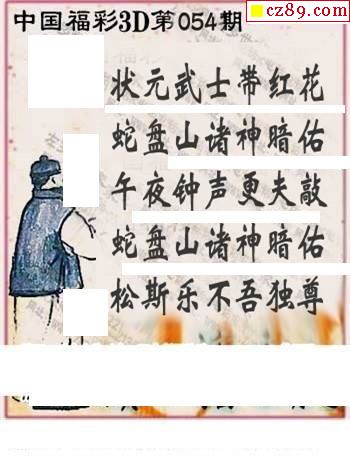 cz89.com
中国福彩3D第054期
状元武士带红花
蛇盘山诸神暗佑
午夜钟声更夫敲
蛇盘山诸神暗佑
松斯乐不吾独尊